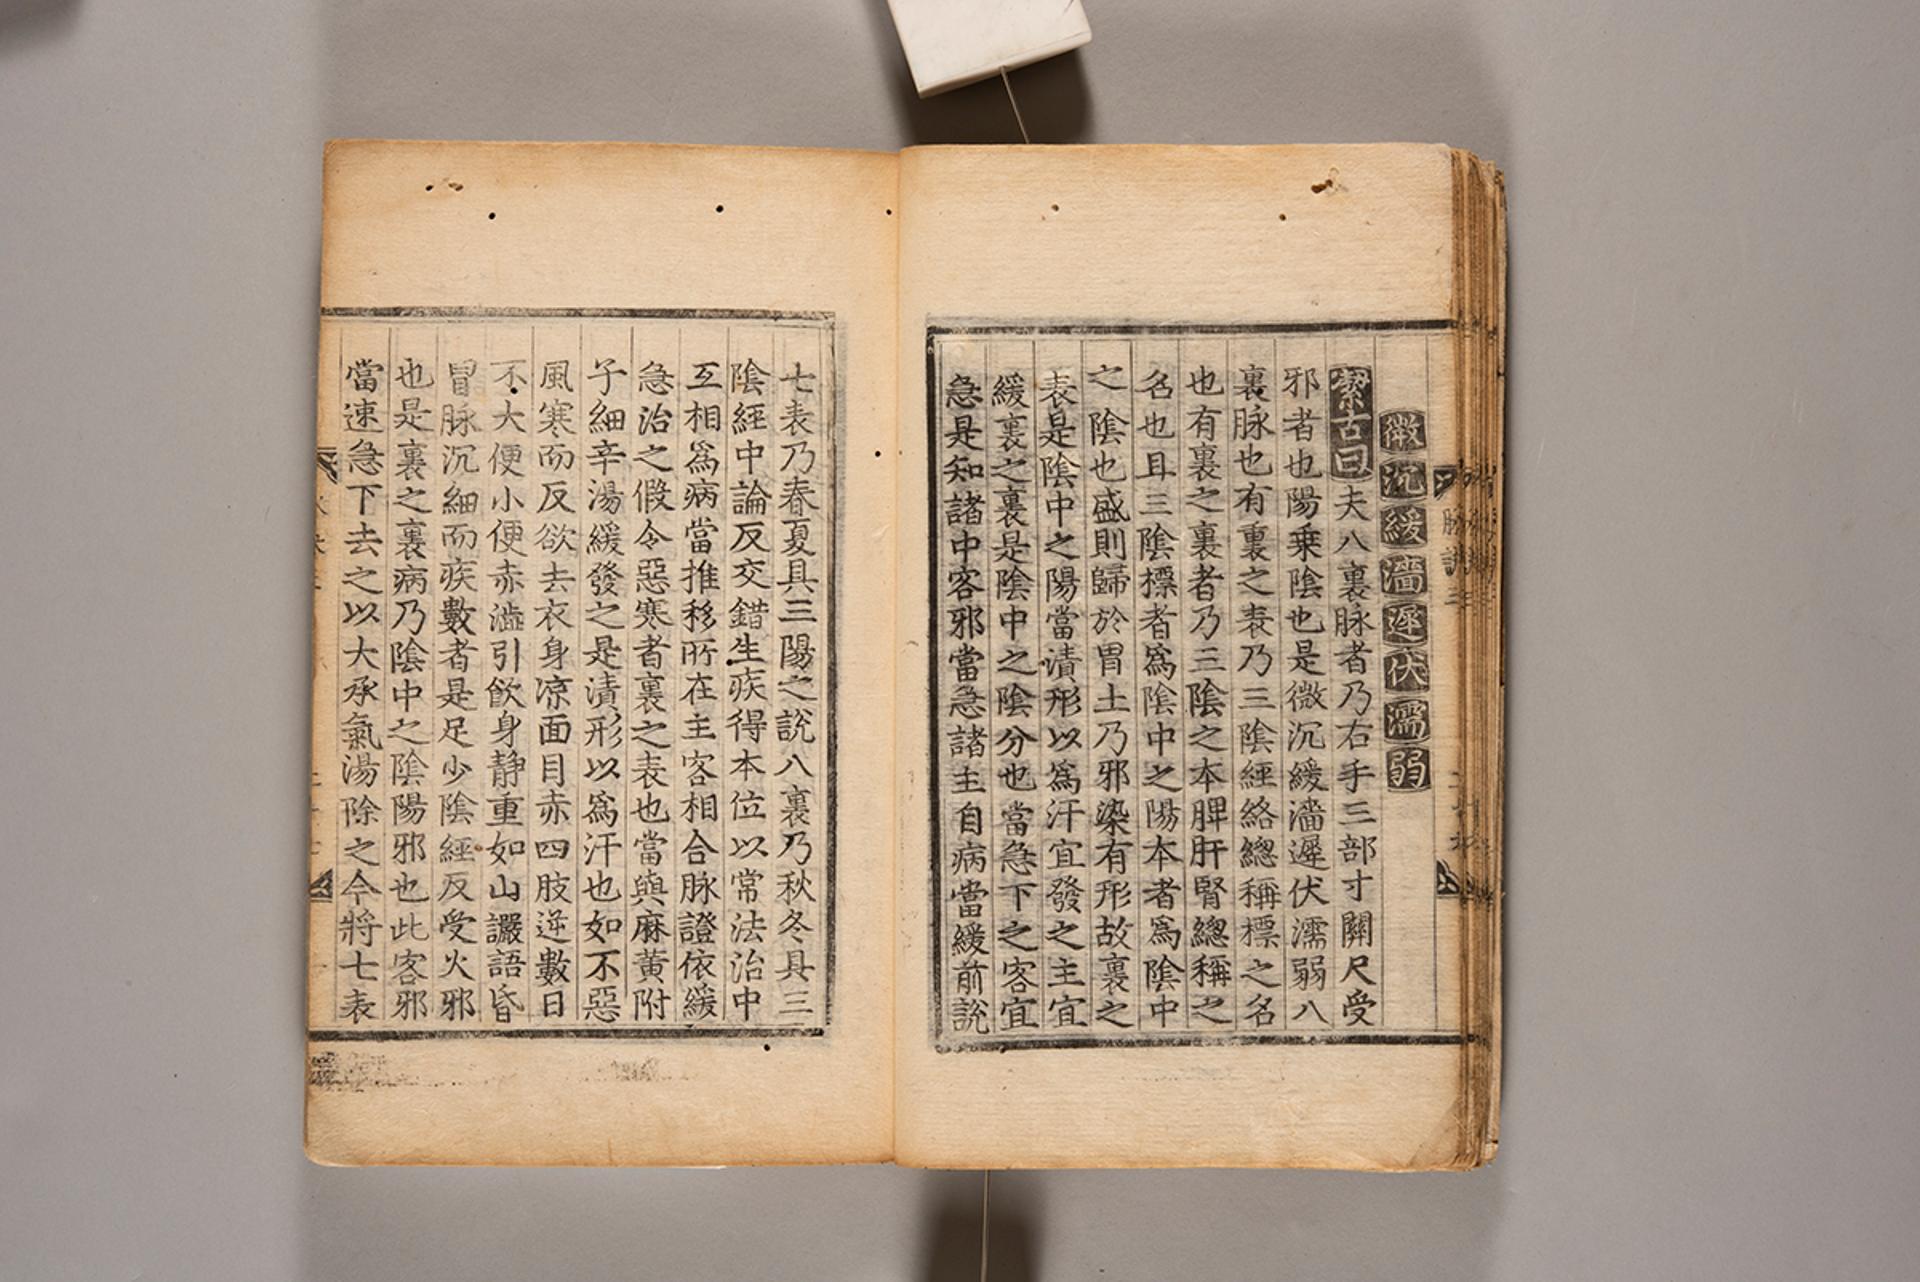 微沉緩濇遲伏濡弱
潔古曰夫八裏脉者乃右手三部寸關尺受
邪者也陽乗陰也是微沉緩濇遲伏濡弱八
裏脉也有重裏之表乃三陰經絡緫稱標之名
也有裏之裏者乃三陰之本脾肝腎緫稱之
名也且三陰標者爲陰中之陽本者爲陰中
之陰也盛則歸於胃土乃邪染有形故裏之
表是陰中之陽當漬形以爲汗宜發之主宜
緩裏之裏是陰中之陰分也當急下之客宜
急是知諸中客邪當急諸主自病當緩前說
七表乃春夏具三陽之說八裏乃秋冬具三
陰經中論反交錯生疾得本位以常法治中
互相爲病當推移所在主客相合脉證依緩
急治之假令惡寒者裏之表也當與麻黄附
子細辛湯緩發之是漬形以爲汗也如不惡
風寒而反欲去衣身凉面目赤四肢逆數日
不大便小便赤澁引飮身静重如山讝語昏
冒脉沉細而疾數者是足少陰經反受火邪
也是裏之裏病乃陰中之陰陽邪也此客邪
當速急下去之以大承氣湯除之今將七表